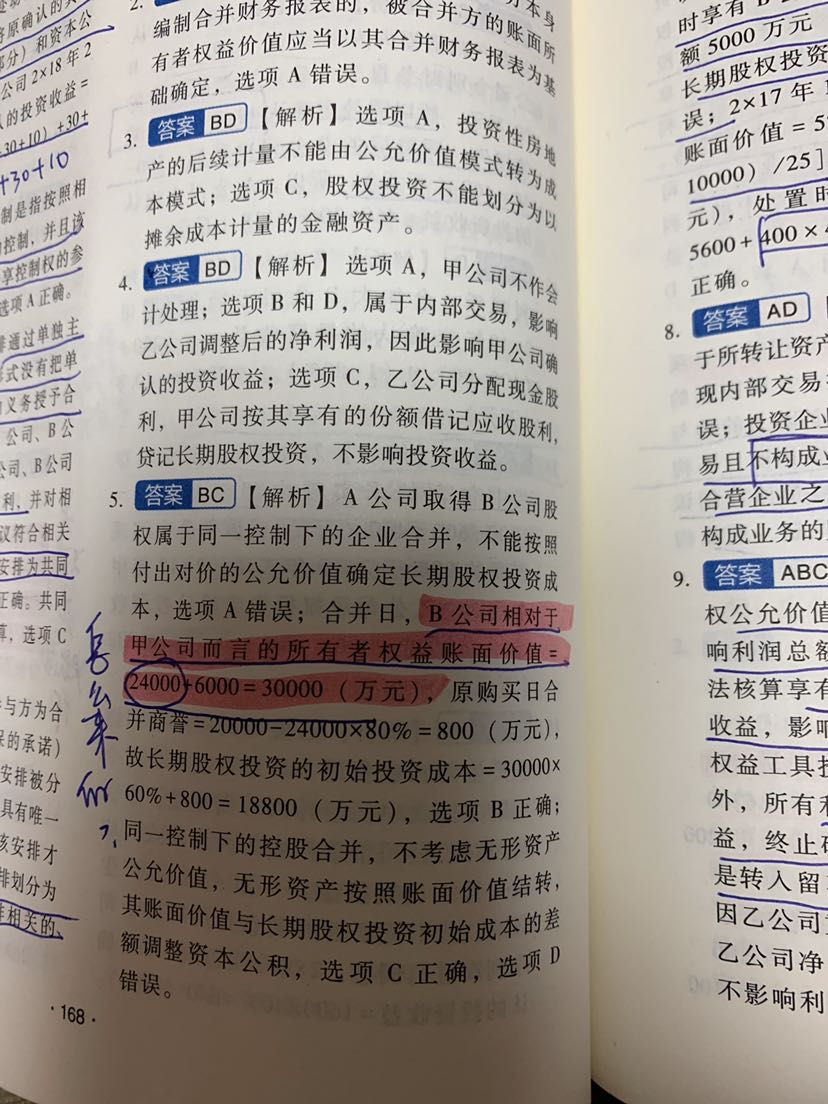 将原确认的其
部分）和资本公
公司2×18年2
认的投资收益=
+30+10）+30+
+30+10
制是指按照相
控制，并且该
享控制权的参
选项A正确。
排通过单独主
形式没有把单
义务授予合
公司、B公
公司、B公司
利，并对相
议符合相关
安排为共同
正确。共同
算，选项C
与方为合
保的承诺）
安排被分
具有唯一
该安排才
排划分为
相关的、
编制合并财务报表的，被合并方的账面所
有者权益价值应当以其合并财务报表为基
础确定，选项A错误。
3. 答案 BD 【解析】选项A，投资性房地
产的后续计量不能由公允价值模式转为成
本模式；选项C，股权投资不能划分为以
摊余成本计量的金融资产。
4. 答案 BD 【解析】选项A，甲公司不作会
计处理；选项B和D，属于内部交易，影响
乙公司调整后的净利润，因此影响甲公司确
认的投资收益；选项C，乙公司分配现金股
利，甲公司按其享有的份额借记应收股利，
贷记长期股权投资，不影响投资收益。
5. 答案 BC 【解析】A公司取得B公司股
权属于同一控制下的企业合并，不能按照
付出对价的公允价值确定长期股权投资成
本，选项A错误；合并日，B公司相对于
甲公司而言的所有者权益账面价值=
24000+6000=30000（万元），原购买日合
并商誉=20000-24000×80%=800（万元），
故长期股权投资的初始投资成本=30000×
60%+800=18800（万元），选项B正确；
同一控制下的控股合并，不考虑无形资产
公允价值，无形资产按照账面价值结转，
其账面价值与长期股权投资初始成本的差
额调整资本公积，选项C正确，选项D
错误。
怎么来的？
·168·
时享有B
额5000万元
长期股权投资
误；2×17年
账面价值=5
10000）/25]
元），处置时
5600+400×
正确。
8. 答案 AD
于所转让资产
现内部交易
误；投资企业
易且不构成业
合营企业之
构成业务的
9. 答案 ABC
权公允价值
响利润总额
法核算享有
收益，影响
权益工具投
外，所有
益，终止确
是转入留
因乙公司
乙公司净
不影响利